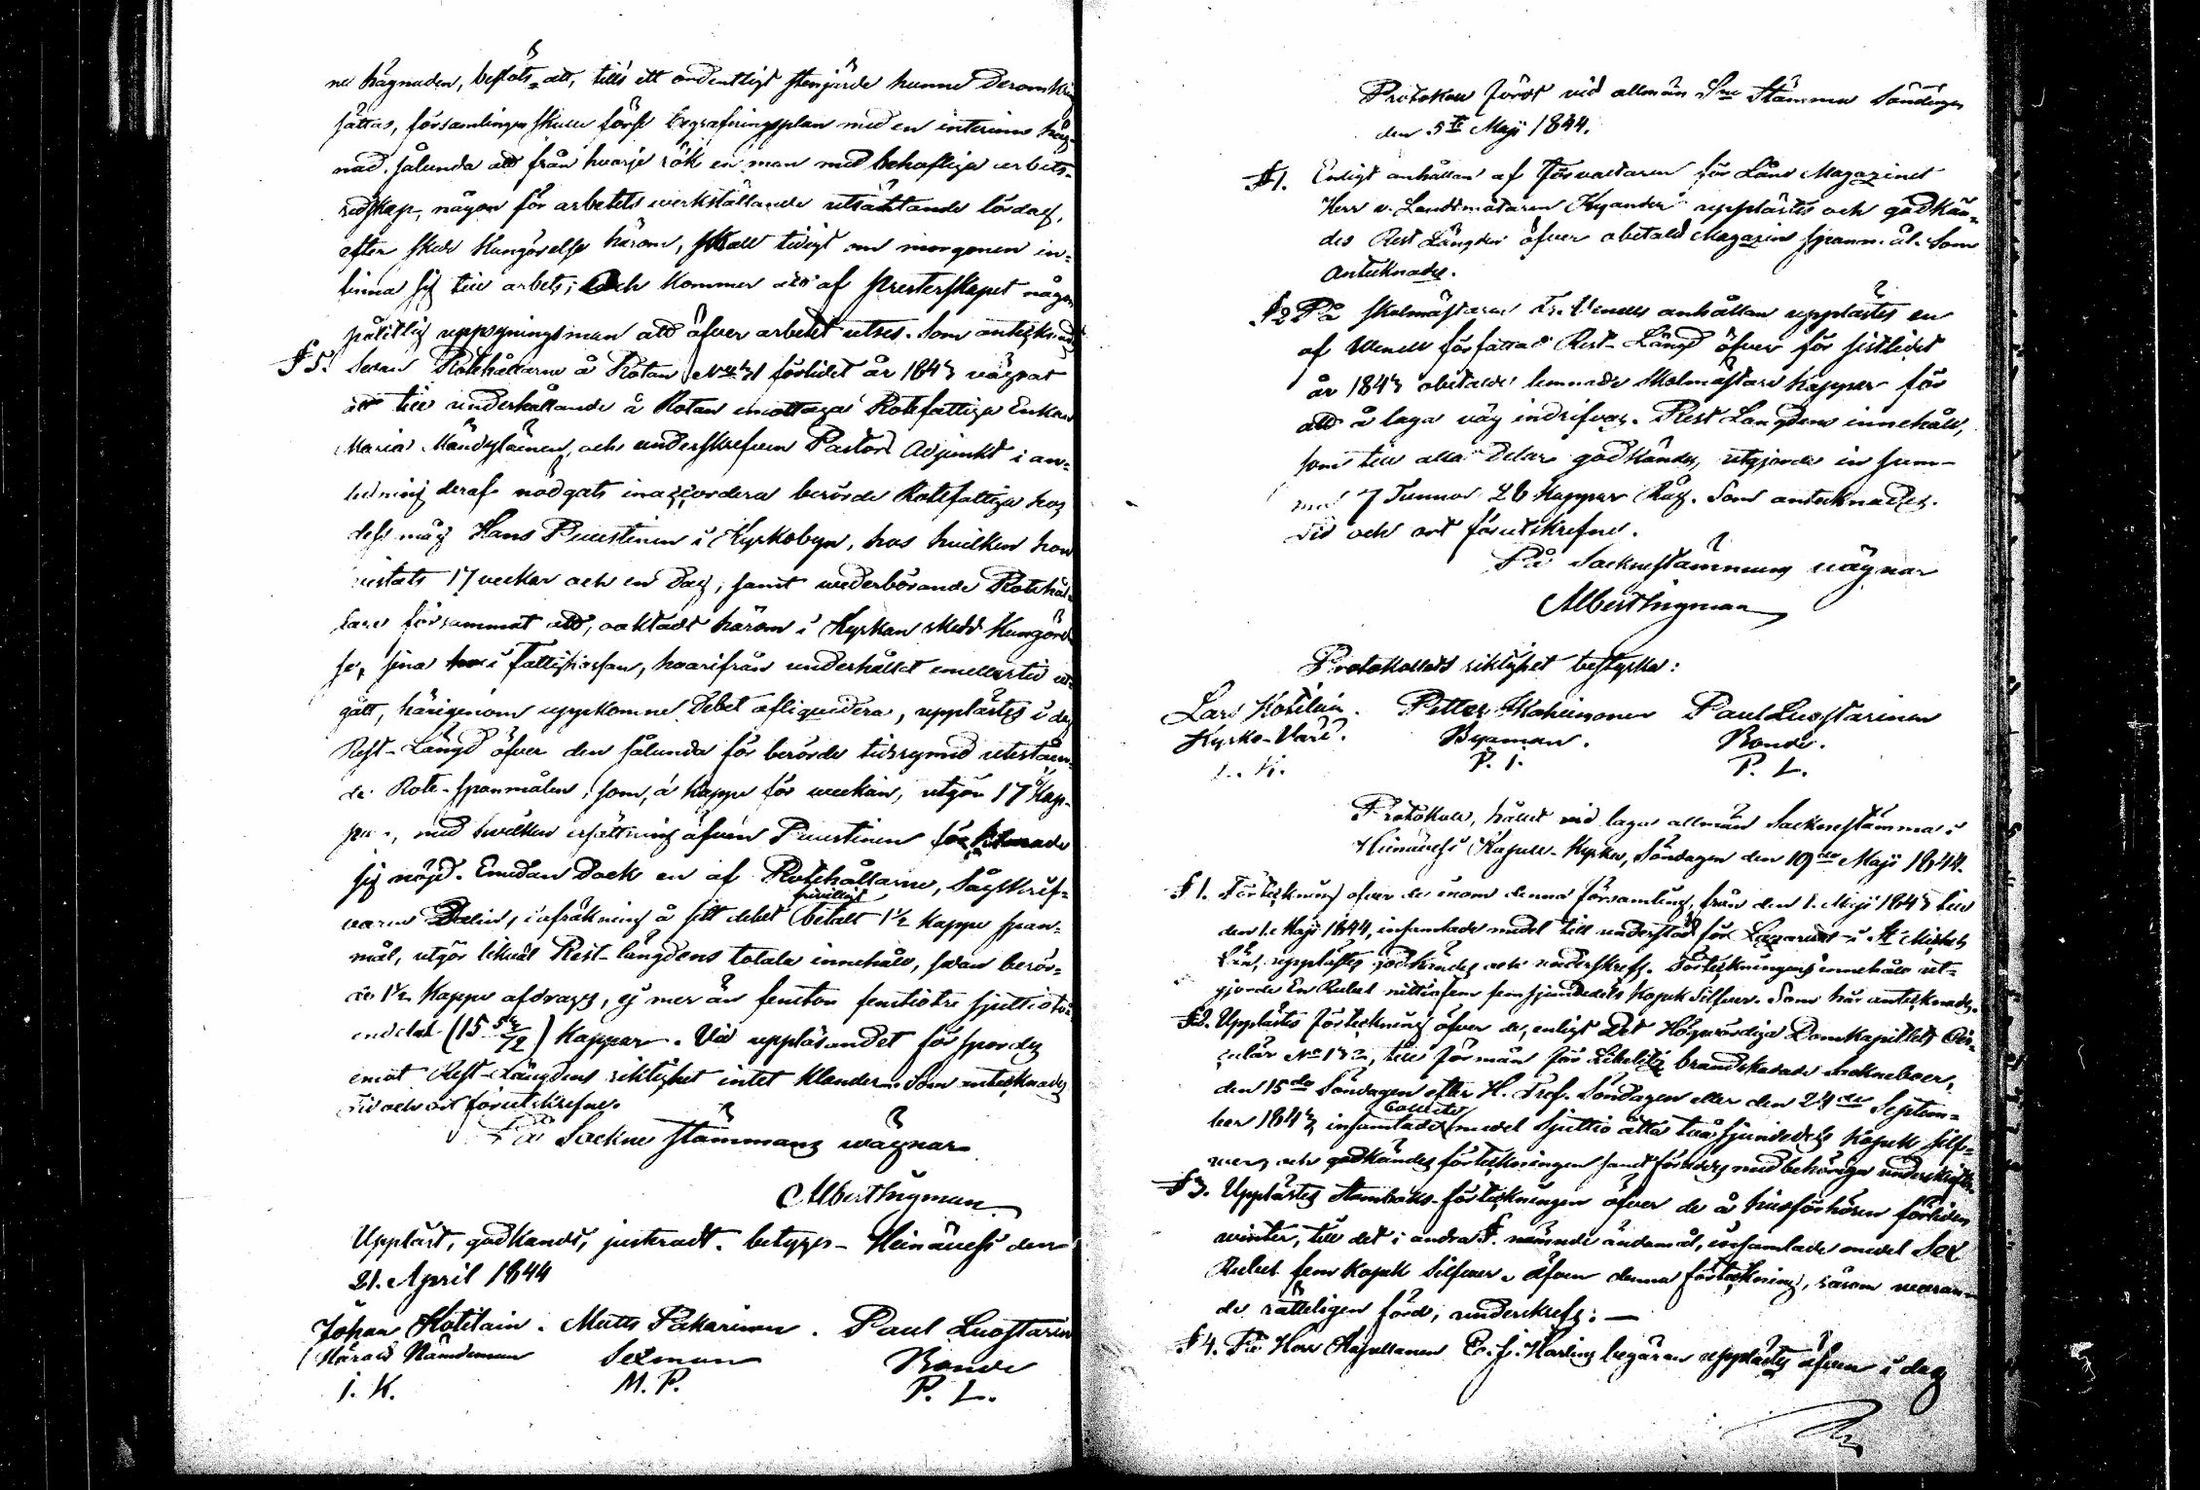 ne hägnaden, beslöts att, tills ett ordentligt stengärde hunne deromkring
sättas, församlingen skulle förse Begrafningsplan med en interims häg-
nad. sålunda att från hvarje rök en man med behöfliga arbets-
redskap, någon för arbetets werkställande utsättande lördag,
efter skedd Kungörelse härom, skall tidigt om morgonen in-
finna sig till arbets; Och kommer att af Presterskapet någon
pålitlig uppsyningsman att öfver arbetet utses. Som antecknades
§ 5. Sedan Rotehållarne å Rotan N:o 31 förlidet år 1843 vägrat
att till underhållande å Rotan emottaga Rotefattiga Enkan
Maria Mändyläinen, och underskrefven Pastors Adjunkt i an-
ledning deraf nödgats inaccordera berörde Rotefattiga hos
dess måg Hans Puustinen i Kyrkobyn, hos hvilken hon
vistats 17 veckor och en dag, samt wederbörande Rotehål-
lare försummat att, oaktadt härom i Kyrkan skedd Kungörel-
se, sina i Fattigkassan, hvarifrån underhållet emellertid ut-
gått, härigenom uppkomne Debet afliquidera, upplästes i dag
Rest-Längd öfver den sålunda för berörde tidrymd uteståen-
de Rote-spanmålen, som, á kappe för weckan, utgör 17 Kap-
par, med hvilken ersättning äfven Puustinen förklarade
sig nöjd. Emedan dock en af Rotehållarne, Sågskrif-
varen Dalin, i afräkning å sitt debet frivilligt betalt 1½ kappe span-
mål, utgör likväl Rest-längdens totala innehåll, sedan berör-
de 1½ Kappe afdrages, ej mer än femton femtiotre sjuttiotvå
endelar (15 53/72) kappar. Vid uppläsandet förspordes
emot Rest-Längdens riktighet intet klander. Som antecknades
Tid och ort förutskrefne.
På Sockne stämmans wägnar
Albert Ingman
Uppläst, godkändt, justeradt, betygas - Heinävesi den
21. April 1844
Johan Kotilain. Matts Pakarinen. Paul Luostarin
Härads Nämndeman Sexman Bonde
J. K. M. P. P. L.
Protokoll fördt vid allmän S:ne Stämma Söndagen
den 5:te Maji 1844.
§1. Enligt anhållan af Förvaltaren för Låns Magazinet
Herr v. Landtmätaren Kyander upplästes och godkän-
des Rest Längden öfver obetald Magazins spanmål. Som
antecknades.
§2 På Skolmästaren Fr. Wenells anhållan upplästes en
af Wenell författad Rest-Längd öfver för sistlidet
år 1843 obetalde lemnade skolmästare kappar för
att å laga väg indrifvas. Rest Längdens innehåll,
som till alla delar godkändes, utgjorde in sum-
ma 7 Tunnor 26 Kappar Råg. Som antecknades.
Tid och ort förutskrefne.
På Socknestämmans vägnar
Albert Ingman
Protokollets riktighet bestyrka:
Lars Kotilain. Petter Kahimonen Paul Luostarinen
Kyrko-Värd. Byaman. Bonde.
L. K. P. P. L.
Protokoll, hållet vid laga allmän Socknestämma i
Heinävesi Kapell-Kyrka, Söndagen den 19:de Maji 1844.
§ 1. Förteckning öfver de inom denna församling, från den 1. Maji 1843 till
den 1. Maji 1844, insamlade medel till understöd för Lazarettet i S:t Michels
Län, upplästes godkändes och underskrefs. Förteckningens innehåll ut-
gjorde En Rubel nittiofem femsjundedels kopek Silfver. Som här antecknades.
§2. Upplästes Förteckning öfver de, enligt Det Högwördiga Domkapitlets Cir-
culär N:o 132, till förmån för Libelitz brandskadade sockneboer,
den 15:de Söndagen efter H. Tref. Söndagen eller den 24:de Septem-
ber 1843 insamlade Collecte medel sjuttio åtta två sjundedels kopek silf-
ver, och godkändes förteckningen samt försågs med behöriga underskrifter.
§3. Upplästes Stamboks-förteckningen öfver de å husförhören förliden
winter, till det i andra §. nämnde ändamål, insamlade medel Sex
Rubel fem kopek Silfver. Äfven denna förteckning, såsom waran-
de rätteligen förd, underskrefs. —
§ 4. På Herr Kapellanen C. J. Harlins begäran upplästes äfven i dag